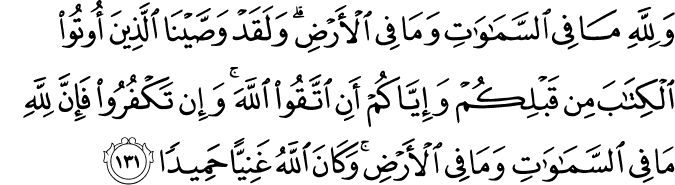 وَلِلَّهِ مَا فِى ٱلسَّمَـٰوَٰتِ وَمَا فِى ٱلْأَرْضِ ۗ وَلَقَدْ وَصَّيْنَا ٱلَّذِينَ أُوتُوا۟
ٱلْكِتَـٰبَ مِن قَبْلِكُمْ وَإِيَّاكُمْ أَنِ ٱتَّقُوا۟ ٱللَّهَ ۚ وَإِن تَكْفُرُوا۟ فَإِنَّ لِلَّهِ
مَا فِى ٱلسَّمَـٰوَٰتِ وَمَا فِى ٱلْأَرْضِ ۚ وَكَانَ ٱللَّهُ غَنِيًّا حَمِيدًا ١٣١